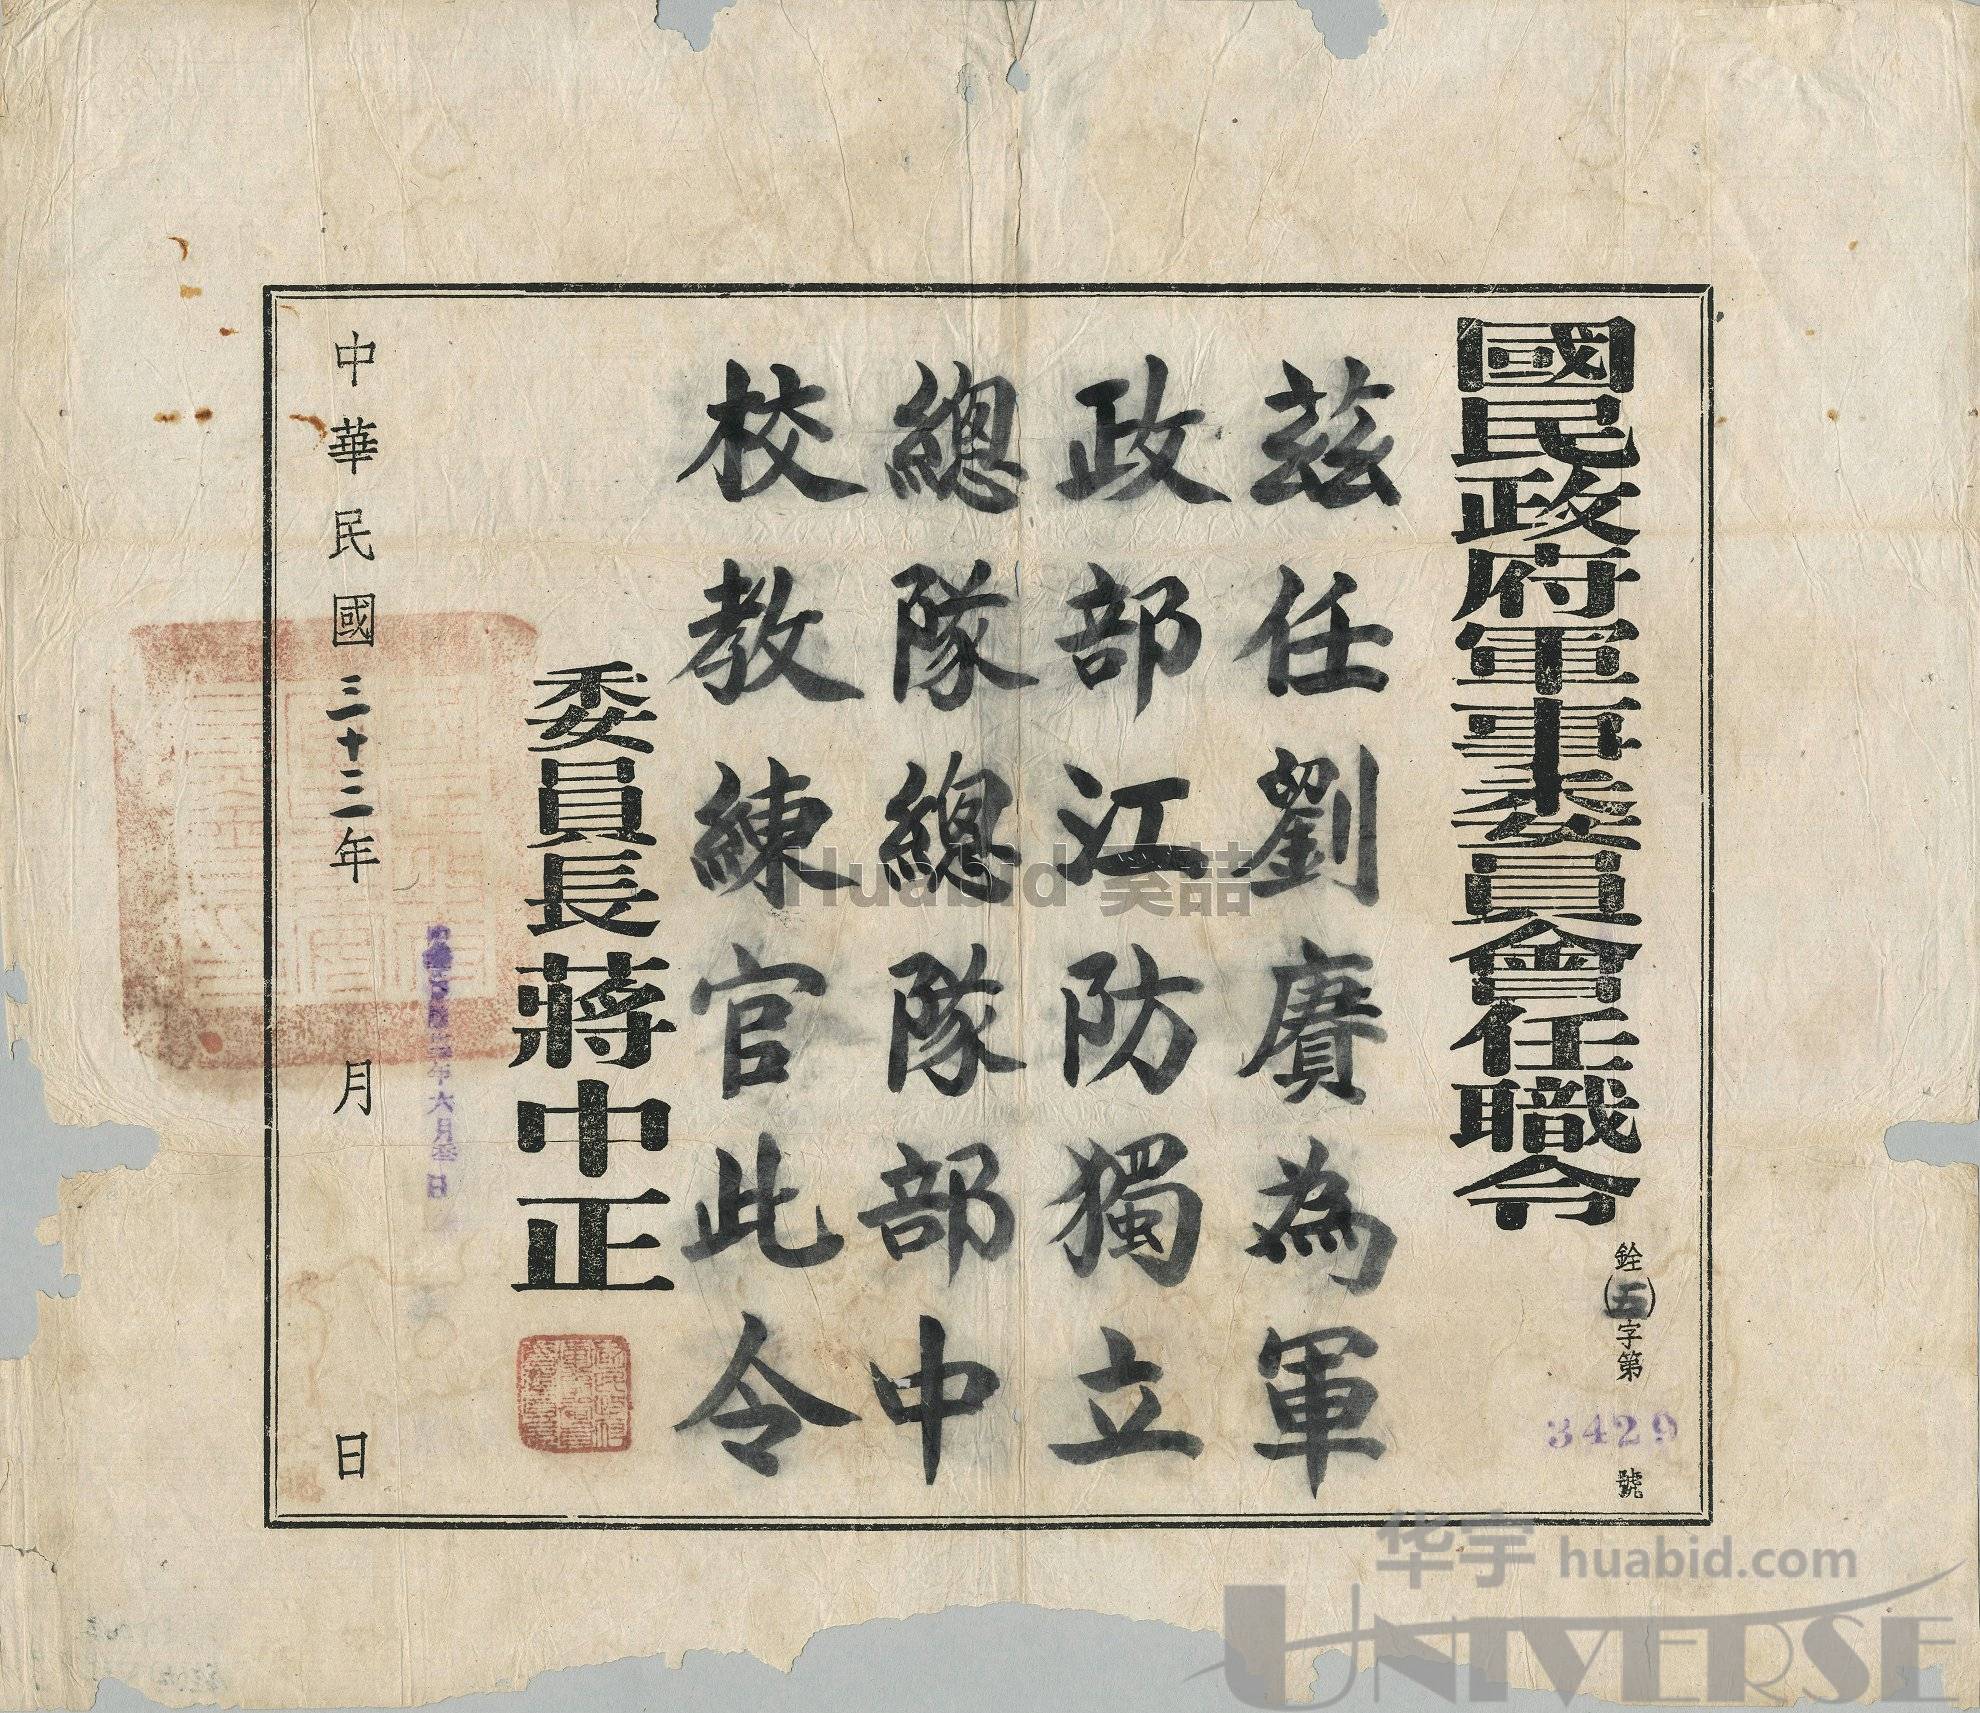 國民政府軍事委員會任職令
銓(五)字第3429號
茲任劉賡為軍
政部江防獨立
總隊總隊部中
校教練官此令
委員長蔣中正
中華民國三十三年 月 日
年六月 日
Huabid 昊喆
华宇 huabid.com
UNIVERSE